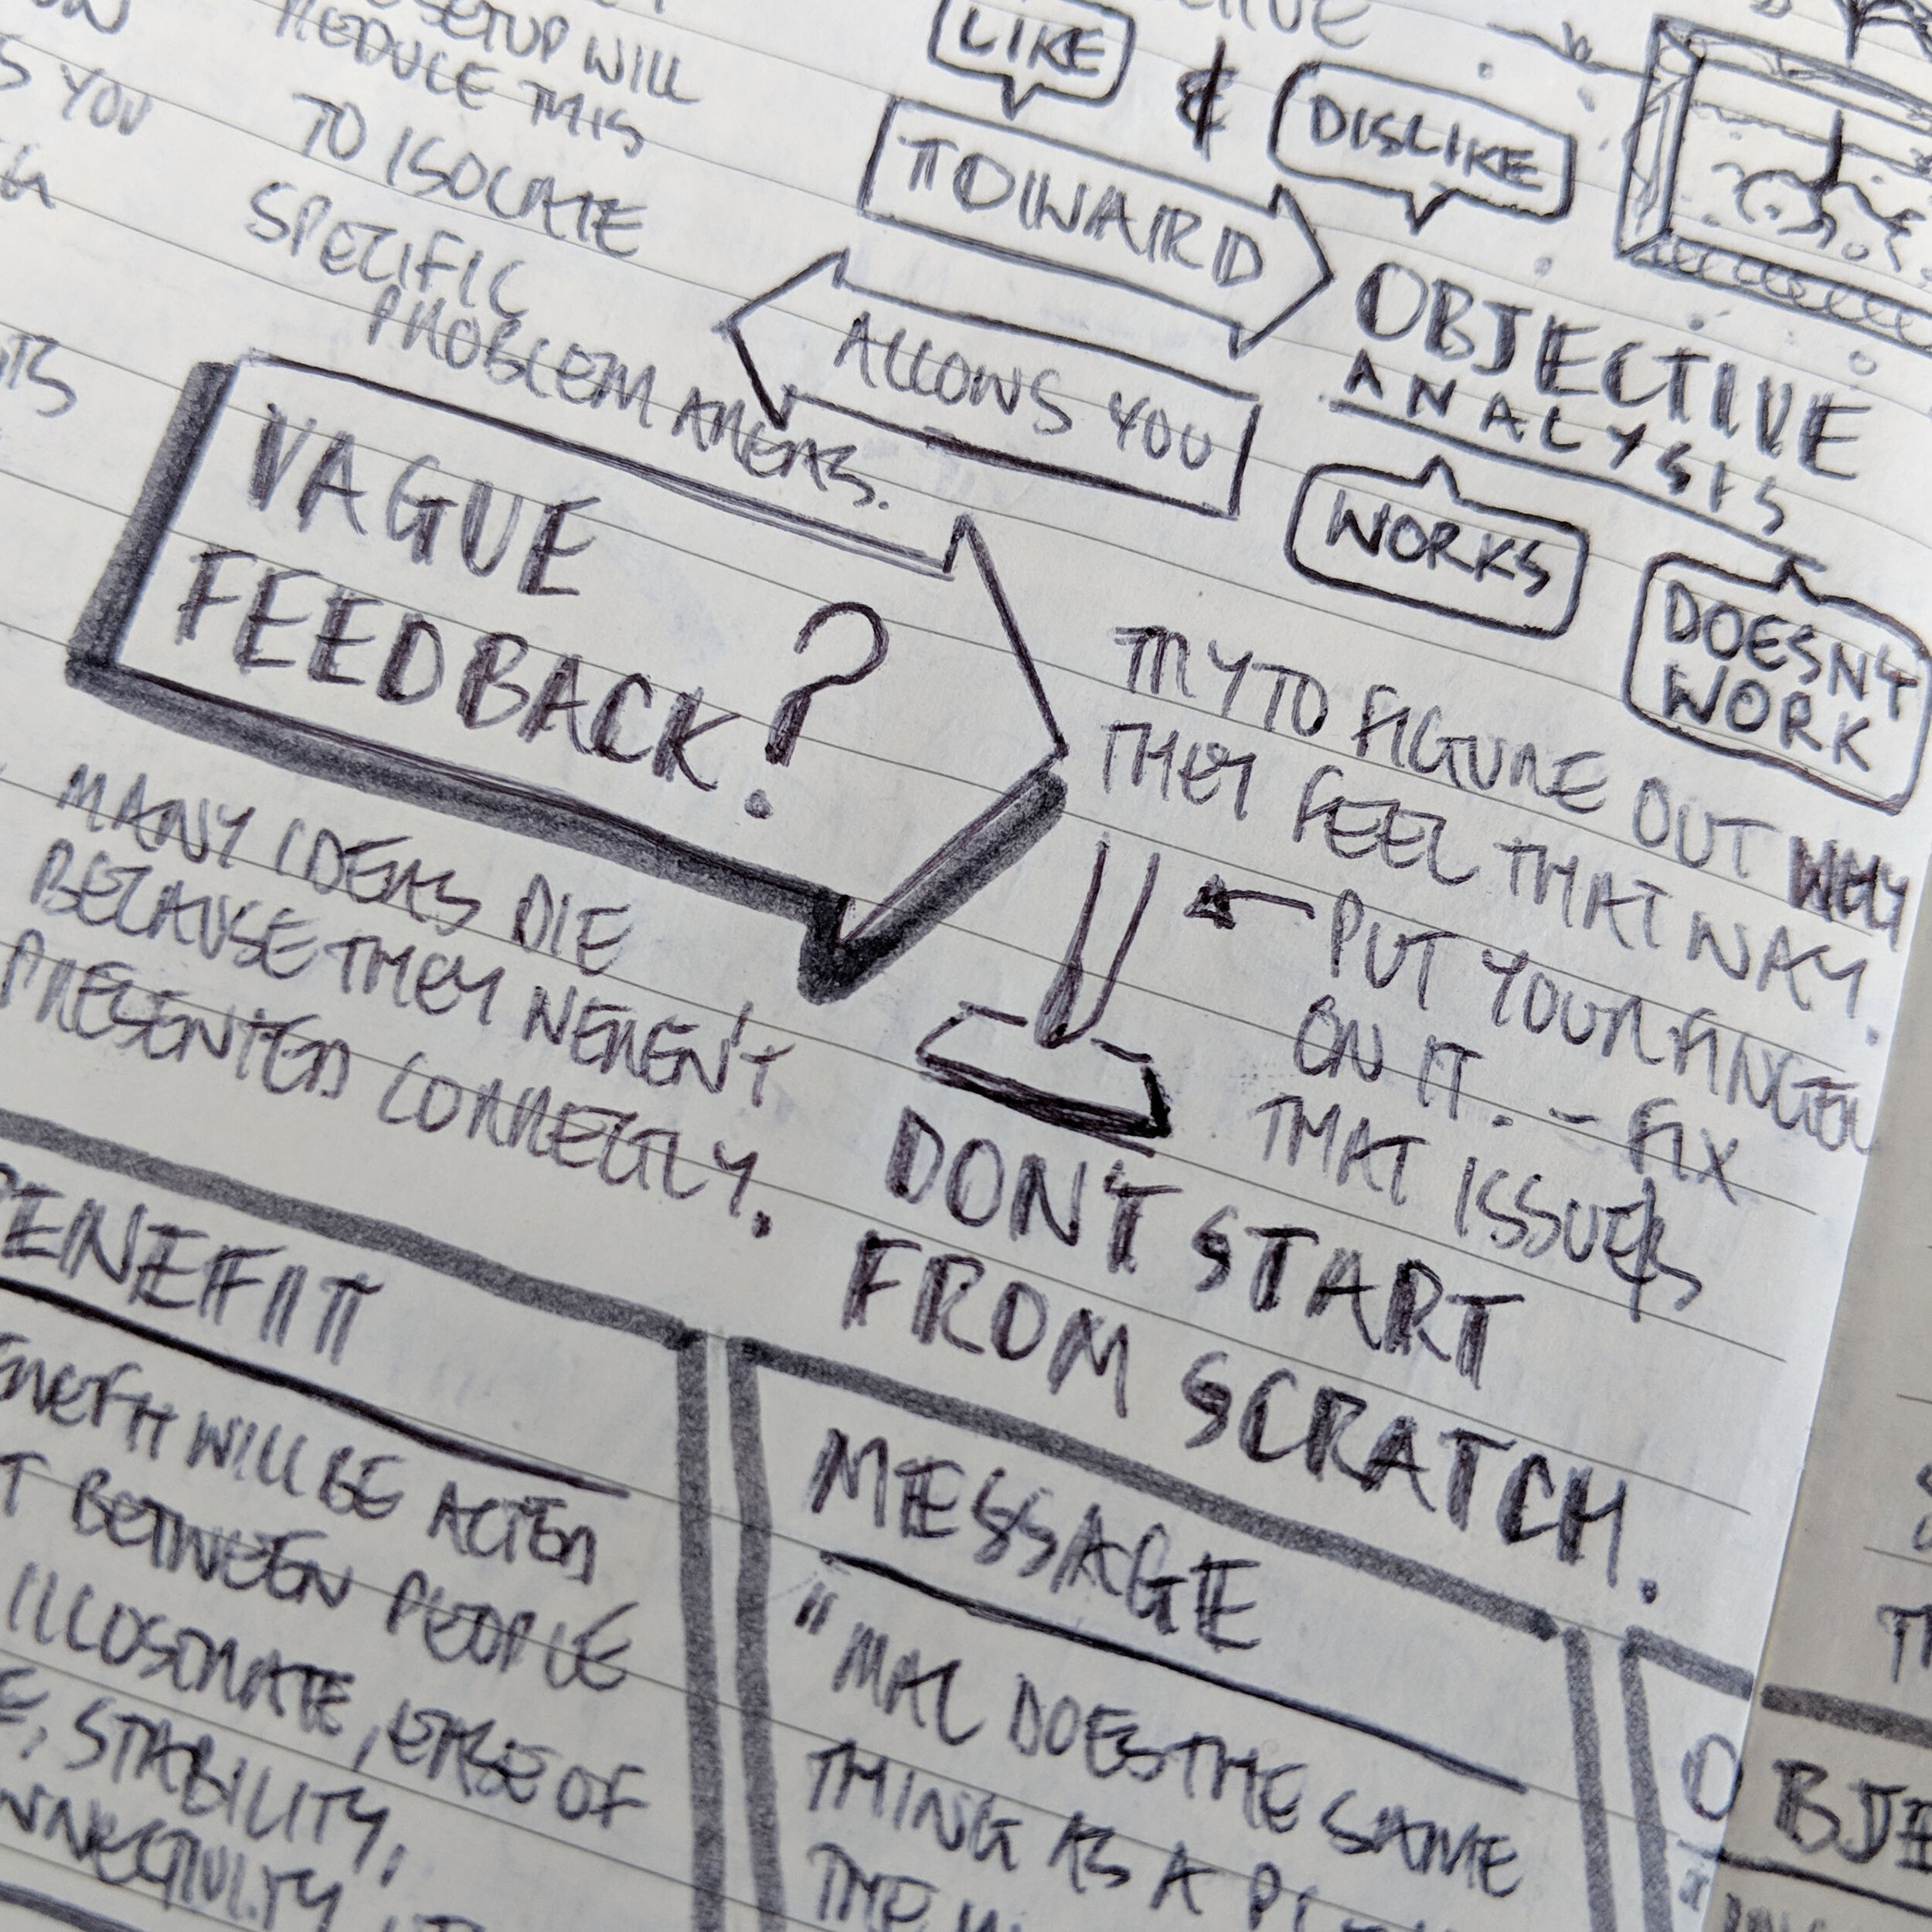 SETUP WILL
REDUCE THIS
YOU
TO ISOLATE
SPECIFIC
PROBLEM AREAS.
LIKE
&
DISLIKE
TOWARD
ALLOWS YOU
OBJECTIVE
ANALYSIS
WORKS
DOESN'T
WORK
VAGUE
FEEDBACK?
TRY TO FIGURE OUT WHY
THEY FEEL THAT WAY.
PUT YOUR FINGER
ON IT. - FIX
THAT ISSUE
MANY IDEAS DIE
BECAUSE THEY WEREN'T
PRESENTED CORRECTLY.
DON'T START
FROM SCRATCH.
BENEFIT
WILL BE ACTED
BETWEEN PEOPLE
ILLUSTRATE, EASE OF
, STABILITY,
MESSAGE
"MAC DOES THE SAME
THING AS A
THE
OBJE